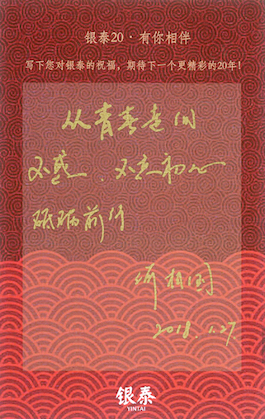 银泰20·有你相伴
写下您对银泰的祝福，期待下一个更精彩的20年！
从青春走向
不惑、不忘初心
砥砺前行
2018.1.27
银泰
YINTAI